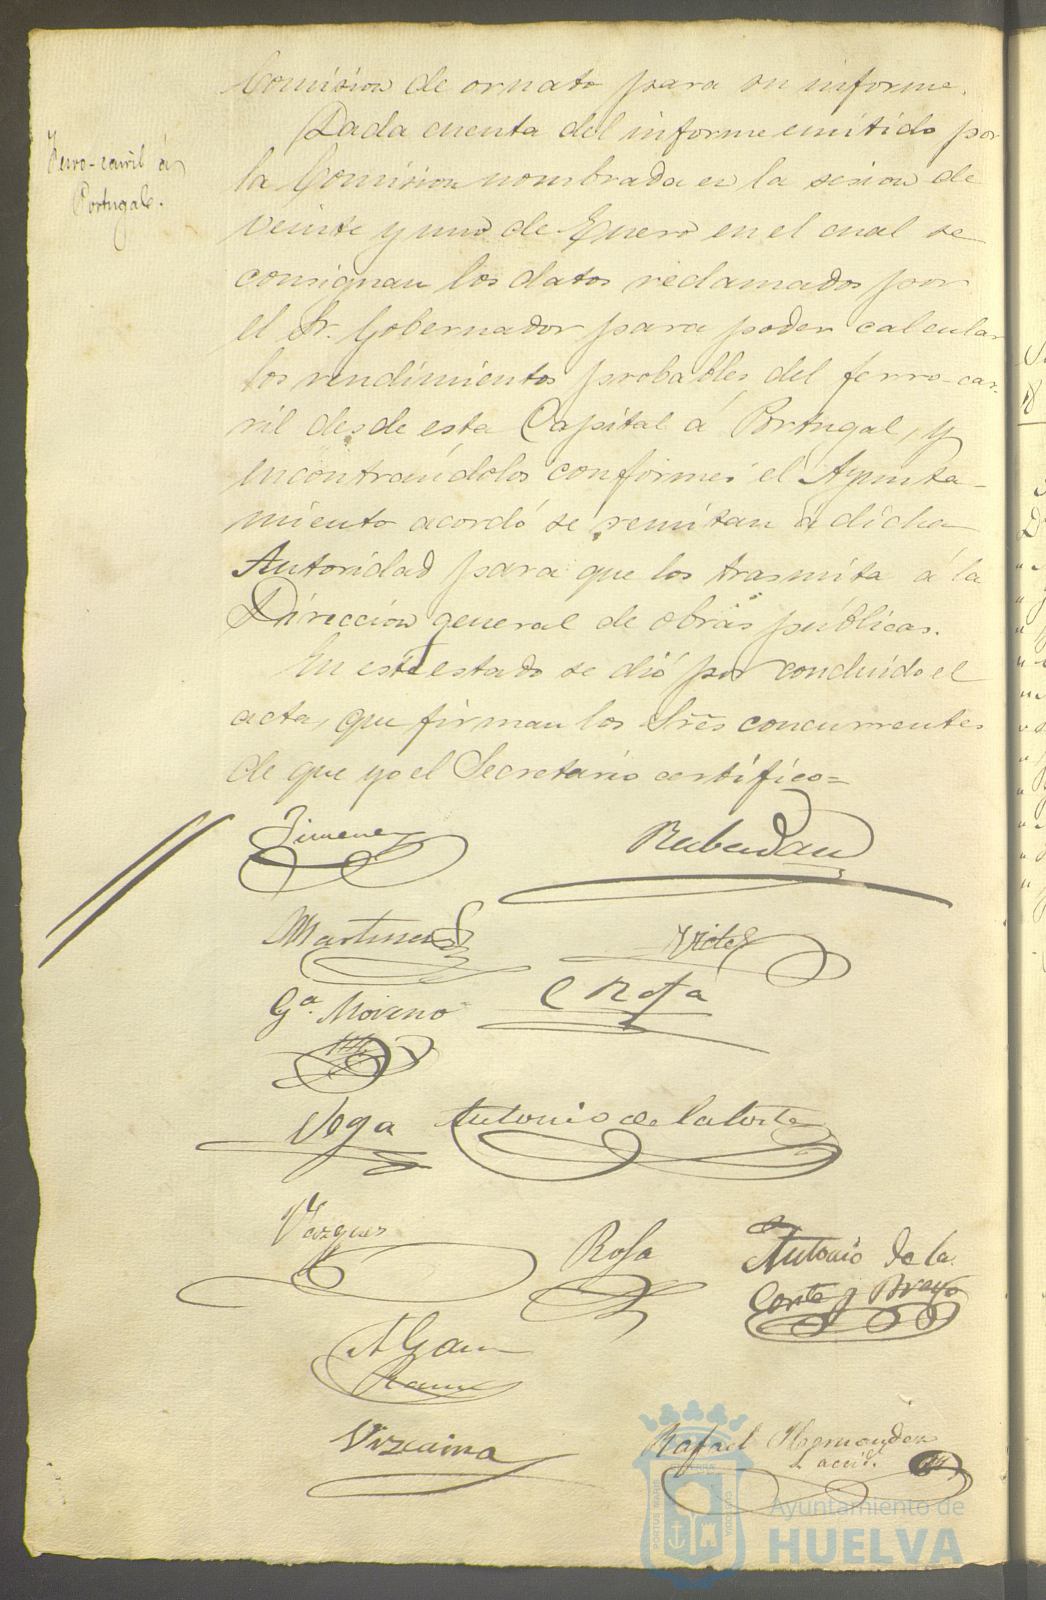 Comision de ornato para su informe.
Ferro-carril á
Portugal.
Dada cuenta del informe emitido por
la Comision nombrada en la sesion de
veinte y uno de Enero en el cual se
consignan los datos reclamados por
el Sr. Gobernador para poder calcular
los rendimientos probables del ferro-car-
ril desde esta Capital á Portugal, y
encontrandolos conformes el Ayunta-
miento acordó se remitan á dicha
Autoridad para que los trasmita á la
Direccion general de obras públicas.
En este estado se dió por concluido el
acta, que firman los Sres concurrentes
de que yo el Secretario certifico=
Jimenez
Martinez
Gª. Moreno
C Rosa
Vega
Antonio de la Corte
Vazquez
Rosa
Antonio de la
Corte y Bravo
Vizcaina
Rafael Hernandez
S. accid.
Ayuntamiento de
HUELVA